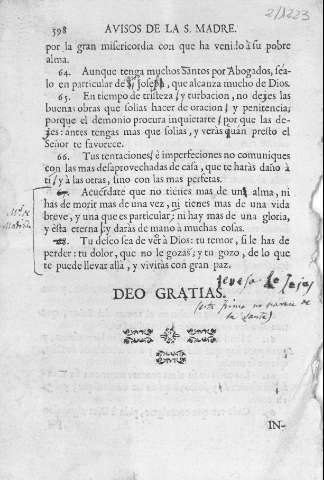 2/1223
598 AVISOS DE LA S. MADRE.
por la gran misericordia con que ha venido à su pobre
alma.
64. Aunque tenga muchos Santos por Abogados, sea-
lo en particular de S. Joseph, que alcanza mucho de Dios.
65. En tiempo de tristeza, y turbacion, no dexes las
buenas obras que solias hacer de oracion, y penitencia;
porque el demonio procura inquietarte, por que las de-
xes: antes tengas mas que solias, y veràs quàn presto el
Señor te favorece.
66. Tus tentaciones, è imperfeciones no comuniques
con las mas desaprovechadas de casa, que te haràs daño à
tì, y à las otras, sino con las mas perfetas.
67. Acuerdate que no tienes mas de una alma, ni
has de morir mas de una vez, ni tienes mas de una vida
breve, y una que es particular; ni hay mas de una gloria,
y esta eterna, y daràs de mano à muchas cosas.
68. Tu deseo sea de vèr à Dios: tu temor, si le has de
perder: tu dolor, que no le gozas; y tu gozo, de lo que
te puede llevar allà, y viviràs con gran paz.
Teresa de Jesus
DEO GRATIAS.
(esta firma no parece de
la Santa)
IN-